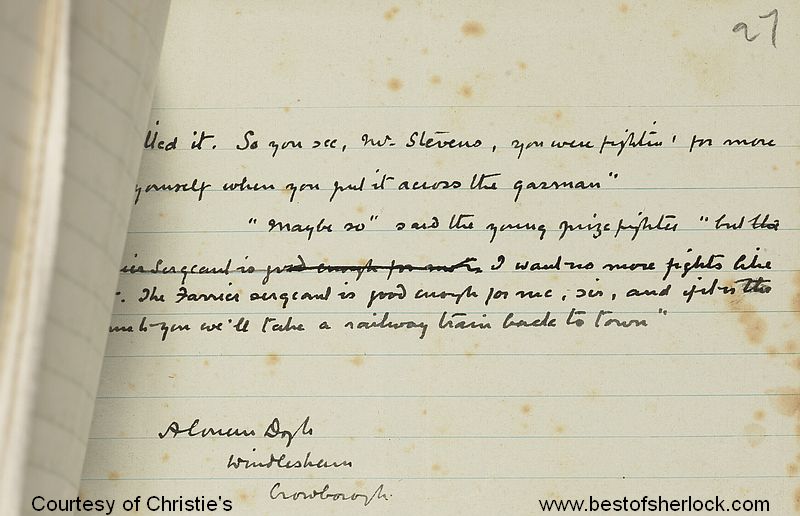 27
lled it. So you see, Mr. Stevens, you were fightin' for more
yourself when you put it across the gasman"
"Maybe so" said the young prize fighter "but the
ier Sergeant is good enough for me. I want no more fights like
t. The Farrier sergeant is good enough for me, sir, and if it is the
same to you we'll take a railway train back to town"
A Conan Doyle
Windlesham
Crowborough.
Courtesy of Christie's
www.bestofsherlock.com